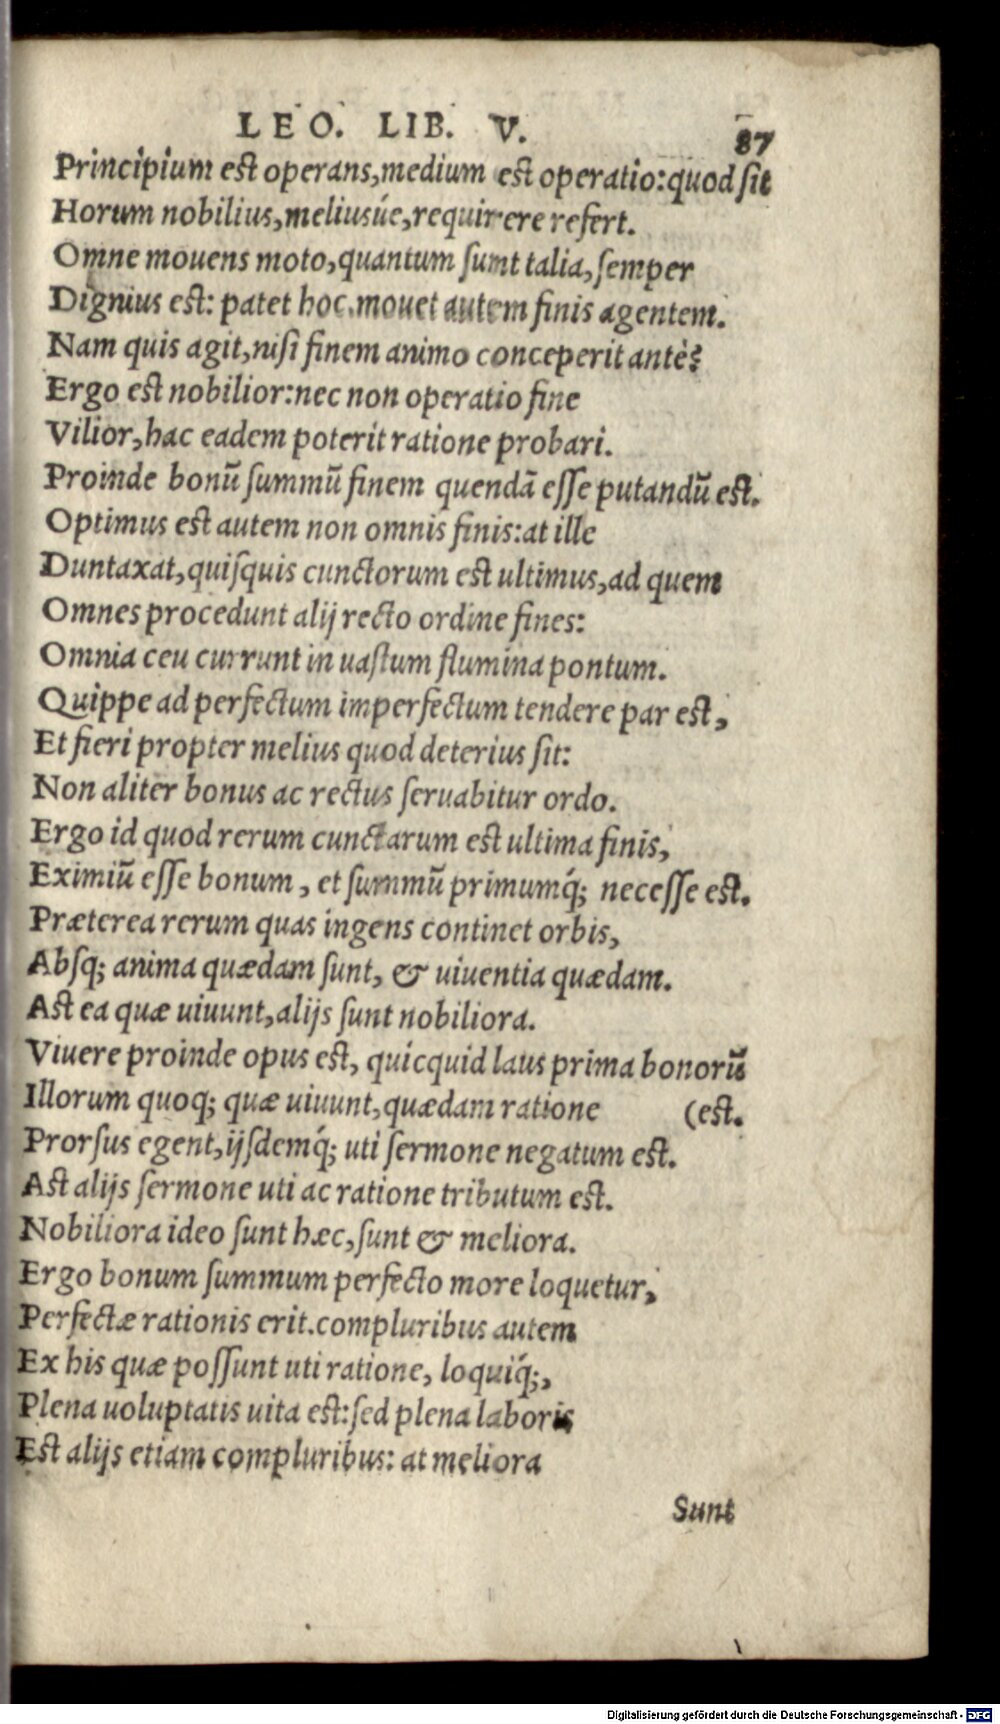 LEO. LIB. V. 87
Principium est operans,medium est operatio:quod sit
Horum nobilius,meliusúe,requirere refert.
Omne mouens moto,quantum sunt talia,semper
Dignius est: patet hoc.mouet autem finis agentem.
Nam quis agit,nisi finem animo conceperit antè?
Ergo est nobilior:nec non operatio fine
Vilior,hac eadem poterit ratione probari.
Proinde bonū summū finem quendā esse putandū est.
Optimus est autem non omnis finis:at ille
Duntaxat,quisquis cunctorum est ultimus,ad quem
Omnes procedunt alij recto ordine fines:
Omnia ceu currunt in uastum flumina pontum.
Quippe ad perfectum imperfectum tendere par est,
Et fieri propter melius quod deterius sit:
Non aliter bonus ac rectus seruabitur ordo.
Ergo id quod rerum cunctarum est ultima finis,
Eximiū esse bonum, et summū primumq́; necesse est.
Præterea rerum quas ingens continet orbis,
Absq; anima quædam sunt, & uiuentia quædam.
Ast ea quæ uiuunt,alijs sunt nobiliora.
Viuere proinde opus est, quicquid laus prima bonorū
Illorum quoq; quæ uiuunt,quædam ratione (est.
Prorsus egent,ijsdemq́; uti sermone negatum est.
Ast alijs sermone uti ac ratione tributum est.
Nobiliora ideo sunt hæc,sunt & meliora.
Ergo bonum summum perfecto more loquetur,
Perfectæ rationis erit.compluribus autem
Ex his quæ possunt uti ratione, loquiq́;,
Plena uoluptatis uita est:sed plena laboris
Est alijs etiam compluribus: at meliora
Sunt
Digitalisierung gefördert durch die Deutsche Forschungsgemeinschaft - DFG